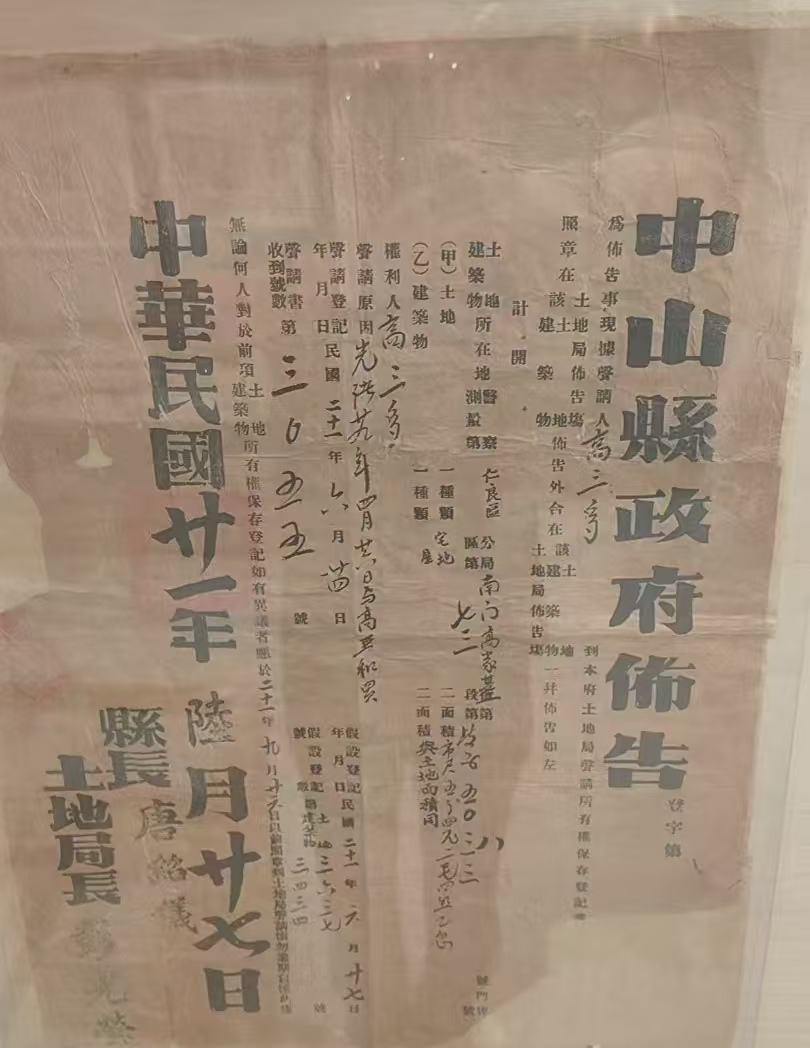 中山縣政府佈告
登字第
為佈告事現據聲請人高三多
到本府土地局聲請所有權保存登記
照章在該
土地
建築物
土地局佈告場
佈告外合在該
土地
建築物
土地局佈告場
一併佈告如左
計開
土地
建築物
所在地警察
仁良區
公局南门高家基第
號門牌
測量第
區第七三
段第
八
號
(甲)土地
一種類
宅地
二面積市尺五分四
(乙)建築物
一種類
屋
二面積與土地面積同
權利人高三多
聲請原因光緒廿九年四月廿八日与高亞和買
聲請登記
年月日
民國二十一年六月廿四日
假設登記
年月日
民國二十一年六月十七日
聲請書
收到號數
第三〇五五號
假設登記
號數
土地
第
三六三七
建築物
三四三四
號
無論何人對於前項
土地
建築物
所有權保存登記如有異議者應於二十一年九月廿六日以前
中華民國廿一年陸月廿七日
縣長唐紹儀
土地局長